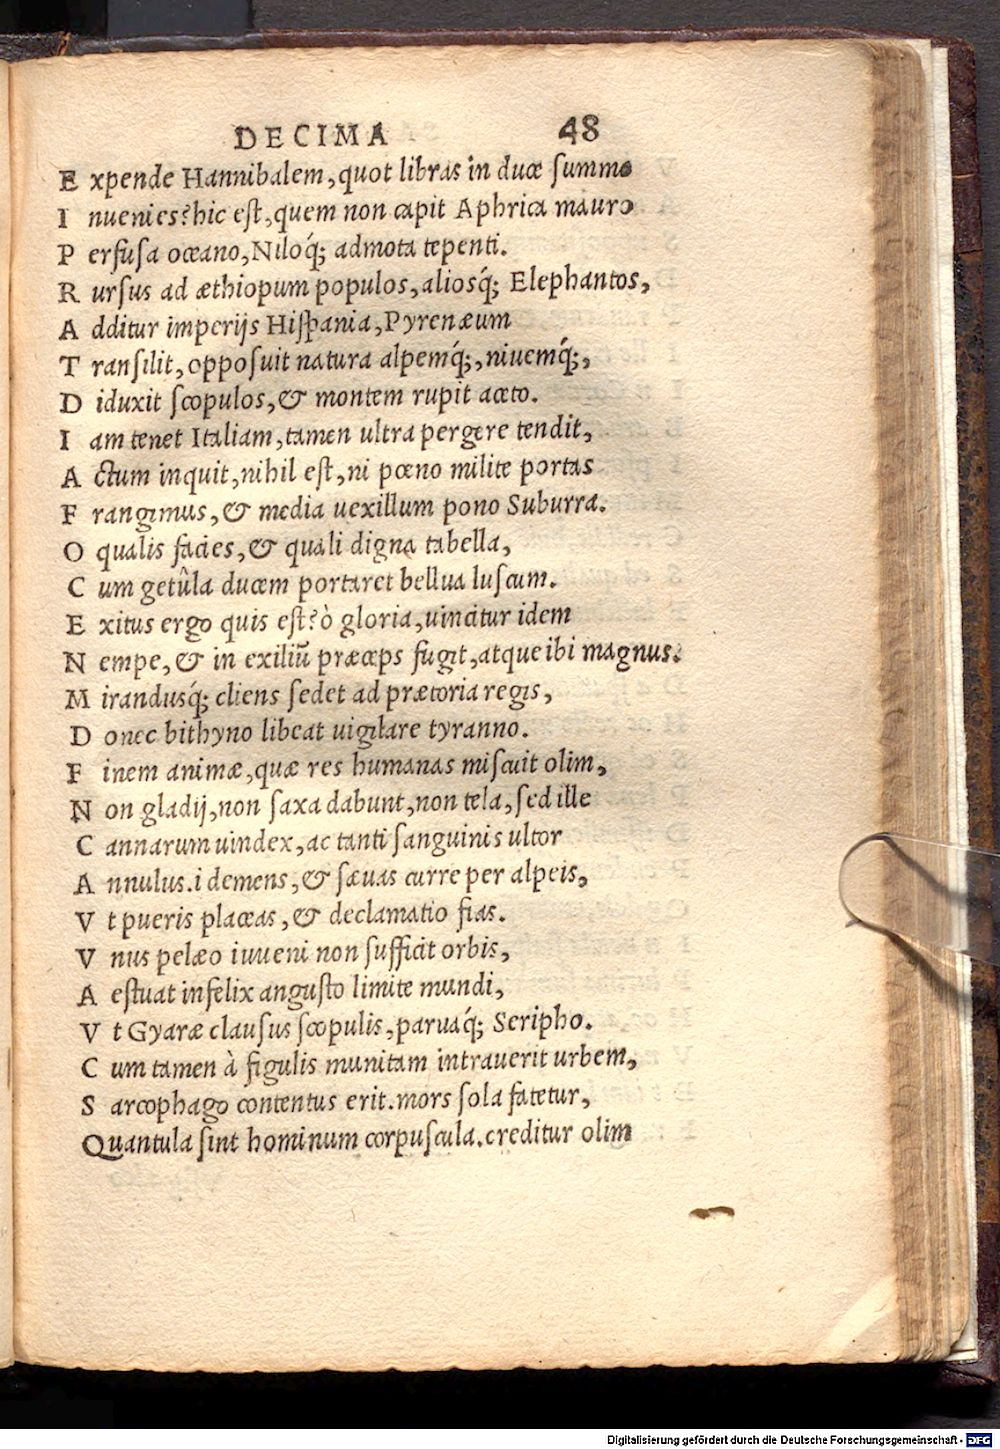 DECIMA 48
E xpende Hannibalem, quot libras in duce summo
I nuenies? hic est, quem non capit Aphrica mauro
P erfusa oceano, Niloq́; admota tepenti.
R ursus ad æthiopum populos, aliosq́; Elephantos,
A dditur imperijs Hispania, Pyrenæum
T ransilit, opposuit natura alpemq́;, niuemq́;,
D iduxit scopulos, & montem rupit aceto.
I am tenet Italiam, tamen ultra pergere tendit,
A ctum inquit, nihil est, ni pœno milite portas
F rangimus, & media uexillum pono Suburra.
O qualis facies, & quali digna tabella,
C um getûla ducem portaret bellua luscum.
E xitus ergo quis est? ò gloria, uincitur idem
N empe, & in exiliũ præceps fugit, atque ibi magnus.
M irandusq́; cliens sedet ad prætoria regis,
D onec bithyno libeat uigilare tyranno.
F inem animæ, quæ res humanas miscuit olim,
N on gladij, non saxa dabunt, non tela, sed ille
C annarum uindex, ac tanti sanguinis ultor
A nnulus. i demens, & sæuas curre per alpeis,
V t pueris placeas, & declamatio fias.
V nus pelæo iuueni non sufficit orbis,
A estuat infelix angusto limite mundi,
V t Gyaræ clausus scopulis, paruaq́; Seripho.
C um tamen à figulis munitam intrauerit urbem,
S arcophago contentus erit. mors sola fatetur,
Quantula sint hominum corpuscula. creditur olim
Digitalisierung gefördert durch die Deutsche Forschungsgemeinschaft - DFG